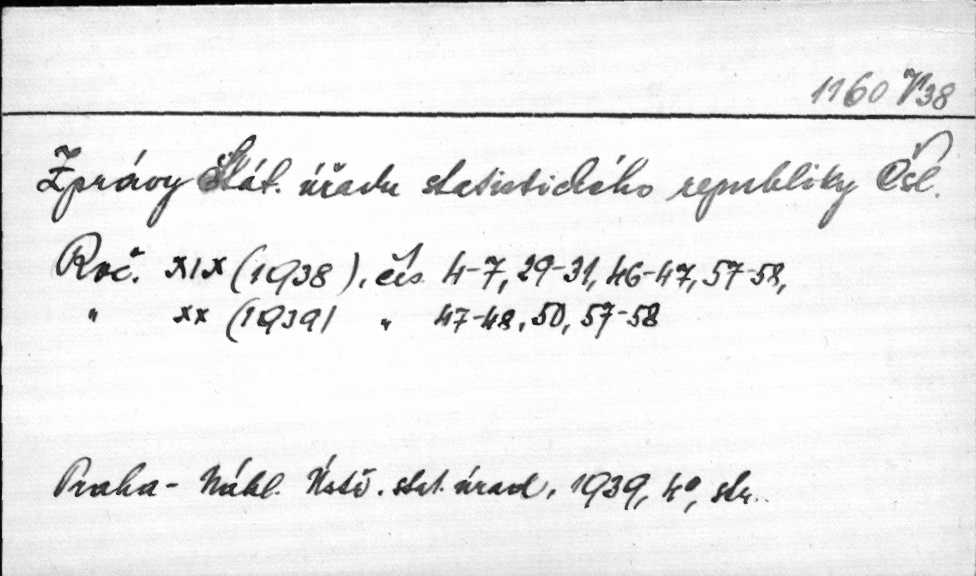 1160 V38
Zprávy Stát. úřadu statistického republiky Čsl.
Roč. XIX (1938), čís 4-7, 29-31, 46-47, 57-58,
" XX (1939) " 47-48, 50, 57-58
Praha - Nákl. Ústř. stat. úřad, 1939, 4°, str.